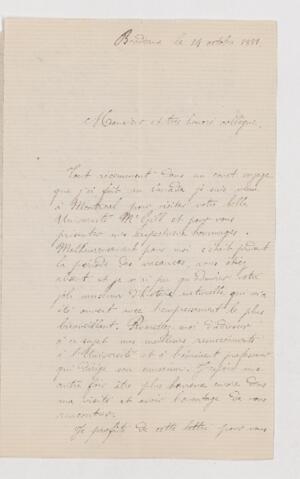 Bordeaux le 14 octobre 1881.
Monsieur et très honoré collègue,
Tout récemment dans un court voyage
que j'ai fait au Canada je suis venu
à Montréal pour visiter votre belle
Université Mc Gill et pour vous
présenter mes respectueux hommages.
Malheureusement pour moi c'était pendant
la période des vacances, vous étiez
absent et je n'ai pu qu'admirer votre
joli museum d'histoire naturelle, qui m'a
été ouvert avec l'empressement le plus
bienveillant. Permettez moi d'adresser
à ce sujet mes meilleurs remerciements
à l'Université et à l'éminent professeur
qui dirige son museum. J'espère une
autre fois être plus heureux encore dans
ma visite et avoir l'avantage de vous
rencontrer.
Je profite de cette lettre pour vous